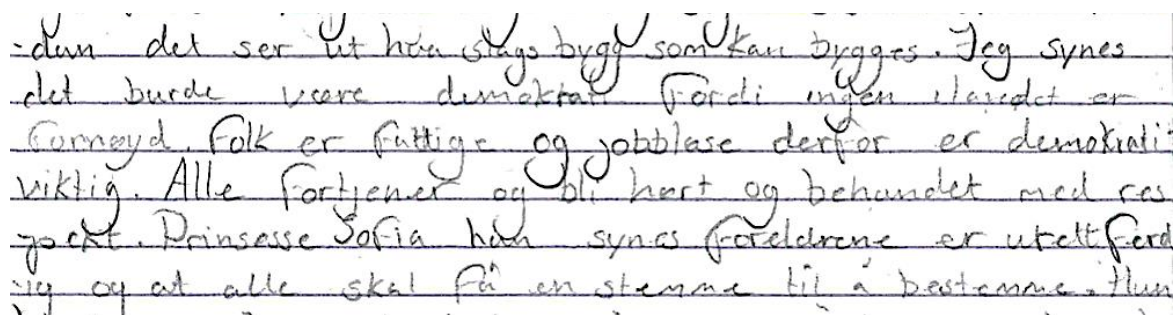 -dan det ser ut hva slags bygg som kan bygges. Jeg synes
det burde være demokrati fordi ingen i landet er
fornøyd. Folk er fattige og jobbløse derfor er demokrati
viktig. Alle fortjener og bli hørt og behandet med res
pekt. Prinsesse Sofia han synes foreldrene er urettferd
ig og at alle skal få en stemme til å bestemme. Hun